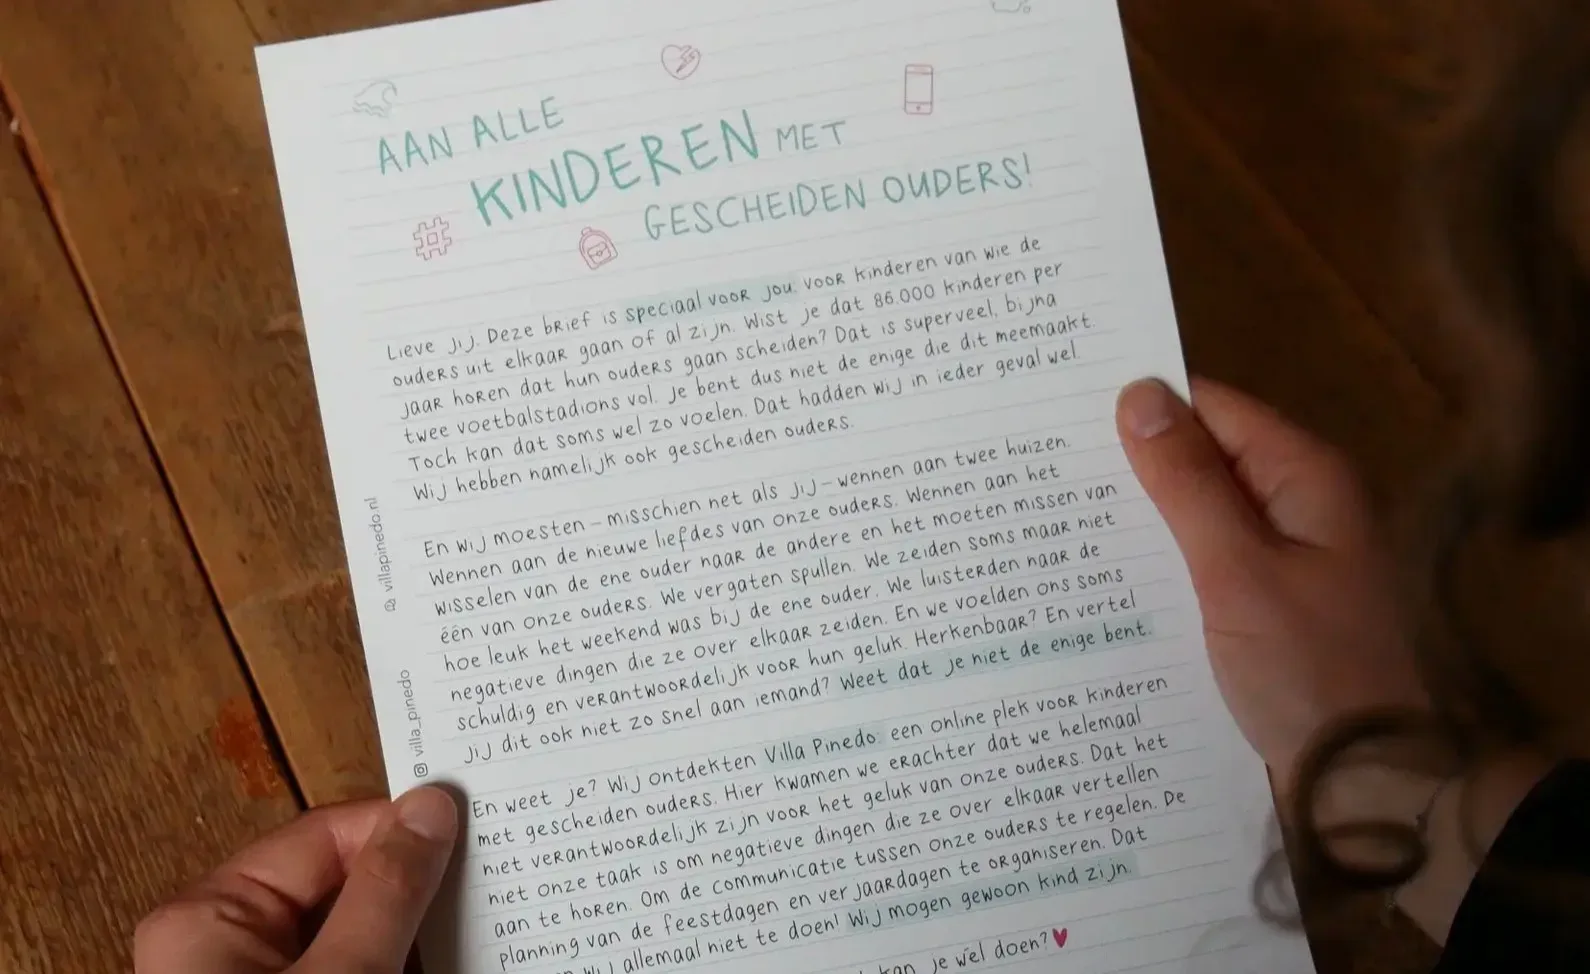 AAN ALLE
KINDEREN MET
GESCHEIDEN OUDERS!
Lieve jij. Deze brief is speciaal voor jou. voor kinderen van wie de
ouders uit elkaar gaan of al zijn. Wist je dat 86.000 kinderen per
jaar horen dat hun ouders gaan scheiden? Dat is superveel, bijna
twee voetbalstadions vol. Je bent dus niet de enige die dit meemaakt.
Toch kan dat soms wel zo voelen. Dat hadden wij in ieder geval wel.
Wij hebben namelijk ook gescheiden ouders.
En wij moesten – misschien net als jij – wennen aan twee huizen.
Wennen aan de nieuwe liefdes van onze ouders. Wennen aan het
wisselen van de ene ouder naar de andere en het moeten missen van
één van onze ouders. We vergaten spullen. We zeiden soms maar niet
hoe leuk het weekend was bij de ene ouder. We luisterden naar de
negatieve dingen die ze over elkaar zeiden. En we voelden ons soms
schuldig en verantwoordelijk voor hun geluk. Herkenbaar? En vertel
jij dit ook niet zo snel aan iemand? Weet dat je niet de enige bent.
En weet je? Wij ontdekten Villa Pinedo: een online plek voor kinderen
met gescheiden ouders. Hier kwamen we erachter dat we helemaal
niet verantwoordelijk zijn voor het geluk van onze ouders. Dat het
niet onze taak is om negatieve dingen die ze over elkaar vertellen
aan te horen. Om de communicatie tussen onze ouders te regelen. De
planning van de feestdagen en verjaardagen te organiseren. Dat
wij allemaal niet te doen! Wij mogen gewoon kind zijn.
kan je wel doen? ♥
villapinedo.nl
villa_pinedo